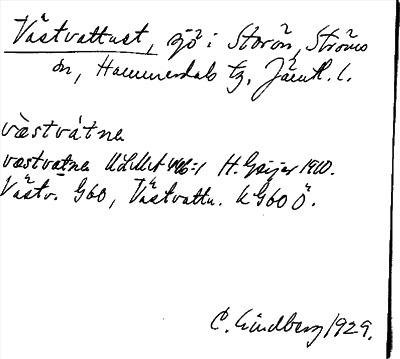 Västvattnet, sjö i Storön, Ströms
sn, Hammerdals tg, Jämtl. l.
vä̀stvátna
västvatna ULMA 446:1 H. Geijer 1910.
Västv. G60, Västvattn. KG60 Ö.
C. Lindberg 1929.